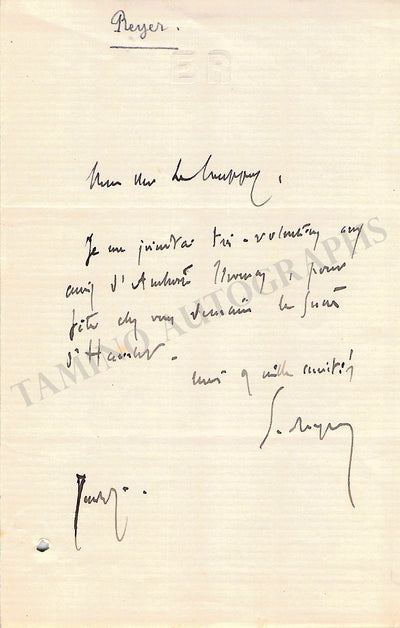 Reyer.
ER
Mon cher
Je me joindrai très volontiers aux
amis d'Ambroise Thomas, pour
fêter chez vous demain le succès
d'Hamlet.
merci & mille amitiés
E. Reyer
TAMINO AUTOGRAPHS